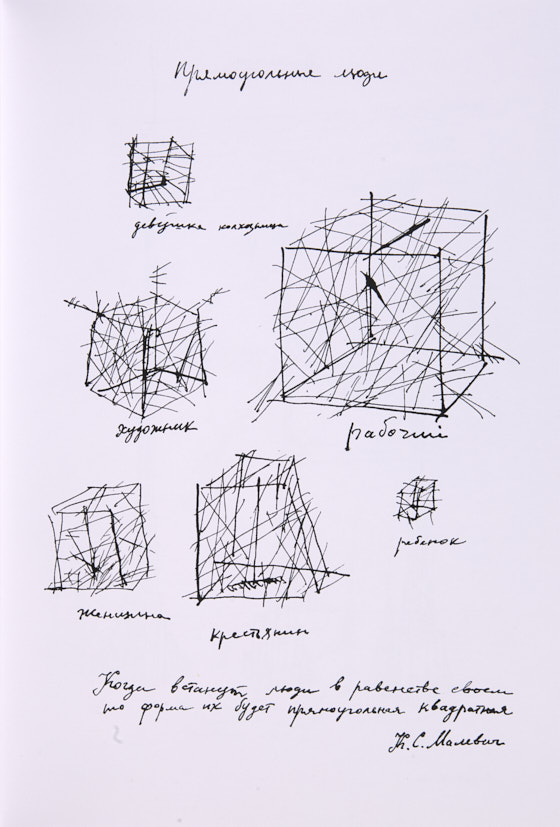 Прямоугольные люди
девушка колхозница
художник
рабочий
женщина
крестьянин
ребенок
Когда встанут люди в равенстве своем
то форма их будет прямоугольная квадратная
К.С. Малевич